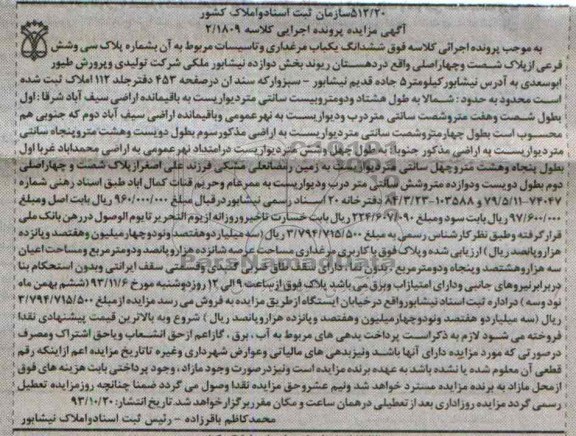 ۵۱۳/۲۰سازمان ثبت اسنادواملاک کشور
آگهی مزایده پرونده اجرایی کلاسه ۲/۱۸۰۹
به موجب پرونده اجرائی کلاسه فوق ششدانگ یکباب مرغداری وتاسیسات مربوط به آن بشماره پلاک سی وشش
فرعی ازپلاک شصت وچهاراصلی واقع دردهستان ریوند بخش دوازده نیشابور ملکی شرکت تولیدی وپرورش طیور
ابوسعدی به آدرس نیشابورکیلومتر۵ جاده قدیم نیشابور - سبزوارکه سند آن درصفحه ۴۵۳ دفترجلد ۱۱۲ املاک ثبت شده
است محدود به حدود : شمالا به طول هشتاد ودومتروبیست سانتی متردیواریست به باقیمانده اراضی سیف آباد شرقا : اول
بطول شصت وهفت متروشصت سانتی متردرب ودیواریست به نهرعمومی وباقیمانده اراضی سیف آباد دوم که جنوبی هم
محسوب است بطول چهارمتروشصت سانتی متردیواریست به اراضی مذکورسوم بطول دویست وهشت متروپنجاه سانتی
متردیواریست به اراضی مذکور جنوبا: به طول چهل وشش متردیواریست درامتداد نهرعمومی به اراضی محمداباد غربا اول
بطول پنجاه وهشت متروچهل سانتی متردیواریست به زمین رمضانعلی مشکی فرزند علی اصغرازپلاک شصت و چهاراصلی
دوم بطول دویست ودوازده متروشش سانتی متر درب ودیواریست به ممرعام وحریم قنات کمال اباد طبق اسناد رهنی شماره
۷۴۰۴۷-۷۹/۵/۱۱ و ۱۰۳۵۸۸-۸۴/۳/۲۳ دفترخانه ۲۰ اسناد رسمی نیشابوردرقبال مبلغ ۹۶۰/۰۰۰/۰۰۰ ریال بابت اصل ومبلغ
۹۷/۶۰۰/۰۰۰ ریال بابت سود ومبلغ ۲۲۴/۶۰۷/۰۹۰ ریال بابت خسارت تاخیروروزانه ازیوم التحریر تا یوم الوصول دررهن بانک ملی
قرارگرفته وطبق نظرکارشناس رسمی به مبلغ ۳/۷۹۴/۷۱۵/۵۰۰ ریال (سه میلیاردوهفتصد ونودوچهارمیلیون وهفتصد وپانزده
هزاروپانصد ریال) ارزیابی شده وپلاک فوق با کاربری مرغداری مساحت عرصه شانزده هزاروپانصد ودومترمربع ومساحت اعیان
سه هزاروهشتصد وپنجاه ودومترمربع ، بدون تیر دارای سقف طاق ضربی گنبدی وقسمتی سقف ایرانی وبدون استحکام بنا
دربرابرنیروهای جانبی ودارای امتیازاب وبرق می باشد پلاک فوق ازساعت ۹ الی ۱۲ روزدوشنبه مورخ ۹۳/۱۱/۶ (ششم بهمن ماه
نود وسه ) دراداره ثبت اسناد نیشابورواقع درخیابان ایستگاه ازطریق مزایده به فروش می رسد مزایده ازمبلغ ۳/۷۹۴/۷۱۵/۵۰۰
ریال (سه میلیاردو هفتصد ونودوچهارمیلیون وهفتصد وپانزده هزاروپانصد ریال ) شروع وبه بالاترین قیمت پیشنهادی نقدا
فروخته می شود لازم به ذکراست پرداخت بدهی های مربوط به آب ، برق ، گازاعم ازحق انشعاب ویاحق اشتراک ومصرف
درصورتی که مورد مزایده دارای آنها باشد ونیزبدهی های مالیاتی وعوارض شهرداری وغیره تاتاریخ مزایده اعم ازاینکه رقم
قطعی آن معلوم شده یا نشده باشد به عهده برنده مزایده است ونیزدرصورت وجود مازاد ، وجوه پرداختی بابت هزینه های فوق
ازمحل مازاد به برنده مزایده مسترد خواهد شد ونیم عشروحق مزایده نقدا وصول می گردد ضمنا چنانچه روزمزایده تعطیل
رسمی گردد مزایده روزاداری بعد ازتعطیلی درهمان ساعت و مکان مقرربرگزارخواهد شد تاریخ انتشار: ۹۳/۱۰/۲۰
محمدکاظم باقرزاده - رئیس ثبت اسنادواملاک نیشابور
ParsNamadData